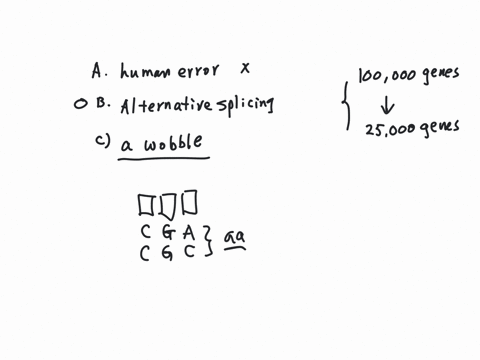 A. human error x
B. Alternative splicing
c) a wobble
100,000 genes
25,000 genes
C G A
C G C
aa